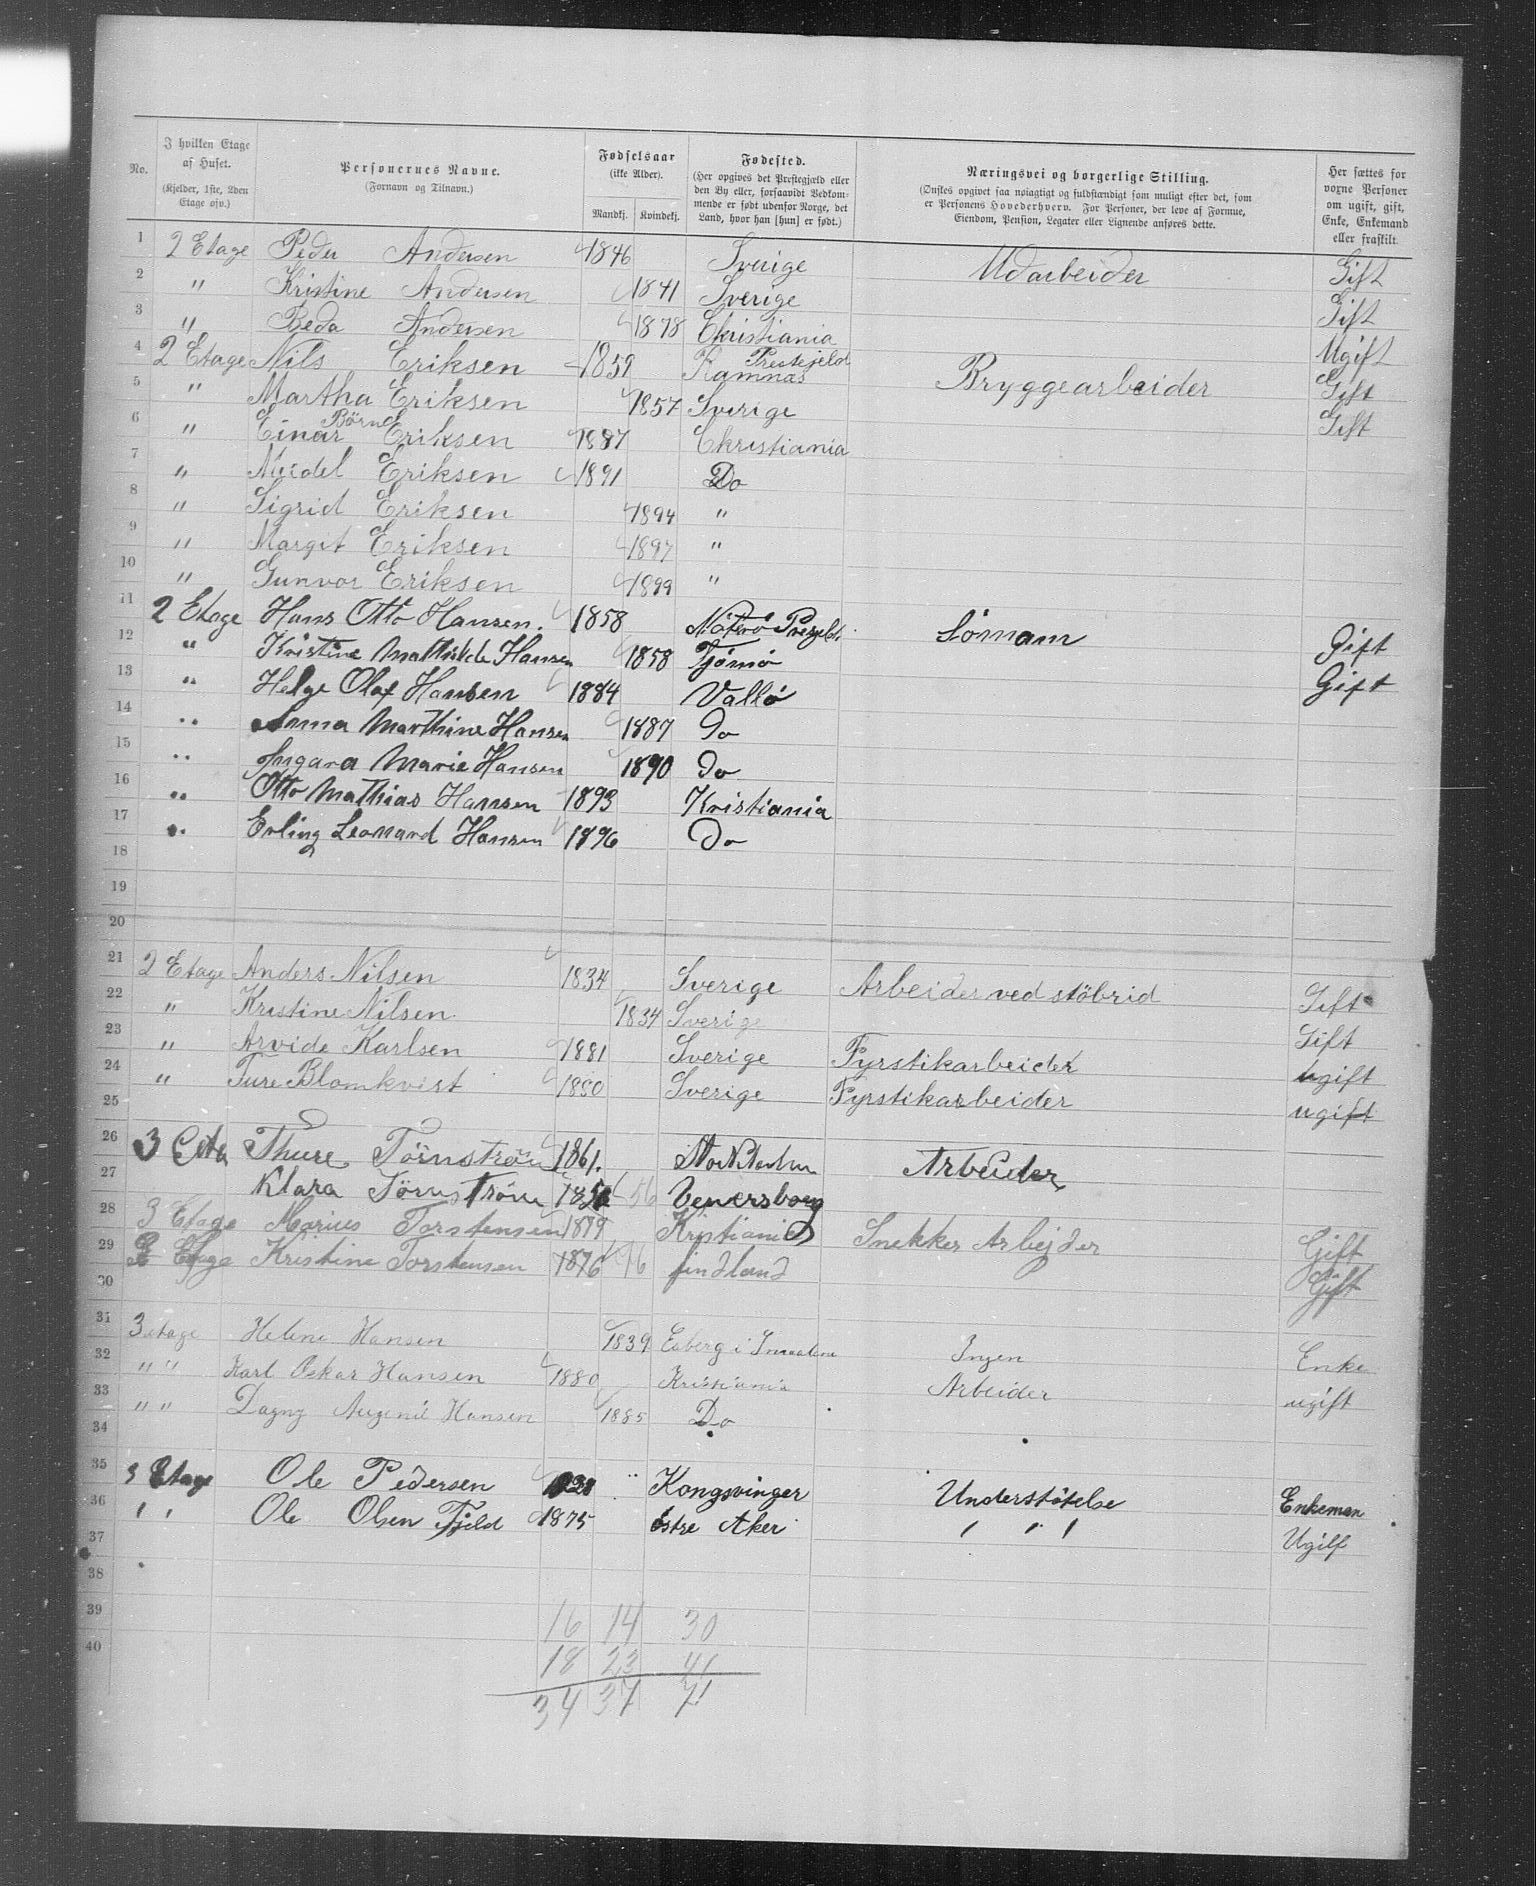 No. | I hvilken Etage af Huset. (Kjelder, 1ste, 2den Etage osv.) | Personernes Navne. (Fornavn og Tilnavn.) | Fødselsaar (ikke Alder). Mandkj. Kvindekj. | Fødested. (Her opgives det Prestegjæld eller den By eller, forsaavidt Vedkommende er født udenfor Norge, det Land, hvor han [hun] er født.) | Næringsvei og borgerlige Stilling. (Ønskes opgivet saa nøiagtigt og fuldstændigt som muligt efter det, som er Personens Hovederhverv. For Personer, der leve af Formue, Eiendom, Pension, Legater eller Lignende anføres dette. | Her sættes for vorne Personer om ugift, gift, Enke, Enkemand eller fraskilt.
1 2 Etage Peder Andersen 1846 Sverige Udarbeider Gift
2 " Kristine Andersen 1841 Sverige Gift
3 " Beda Andersen 1878 Christiania Ugift
4 2 Etage Nils Eriksen 1859 Ramnas Prestejeld Bryggearbeider Gift
5 " Martha Eriksen 1857 Sverige Gift
6 " Børn Einar Eriksen 1887 Christiania
7 " Eriksen 1891 Do
8 " Sigrid Eriksen 1894 "
9 " Margit Eriksen 1897 "
10 " Gunvor Eriksen 1899 "
11 2 Etage Hans Otto Hansen. 1858 Nøterø Sømam Gift
12 " Kristine Mathilde Hansen 1858 Tjømø Gift
13 " Helge Olaf Hansen 1884 Vallø
14 " Anna Marthine Hansen 1887 Do
15 " Ingara Marie Hansen 1890 Do
16 " Otto Mathias Hansen 1893 Kristiania
17 " Erling Leonard Hansen 1896 Do
18
19
20
21 2 Etage Anders Nilsen 1834 Sverige Arbeider ved støbrid Gift
22 " Kristine Nilsen 1834 Sverige Gift
23 " Arvide Karlsen 1881 Sverige Fyrstikarbeider ugift
24 " Ture Blomkvist 1880 Sverige Fyrstikarbeider ugift
25
26 3 Thure Törnström 1861. Arbeider
27 Klara Törnström 56 Venersborg
28 3 Etage Marius Torstensen 1879 Kristiania Snekker Arbejder Gift
29 Etage Kristine Torstensen 1876 76 findland Gift
30
31 3 etage Helene Hansen 1839 Ingen Enke
32 " " Karl Oskar Hansen 1880 Kristiania Arbeider ugift
33 " " Dagny Augenie Hansen 1885 Do
34
35 3 Etage Ole Pedersen Kongsvinger Understøtelse Enkeman
36 " Ole Olsen Fjeld 1875 østre Aker " " Ugift
37
38
39 16 14 30
40 18 23 41
34 37 71